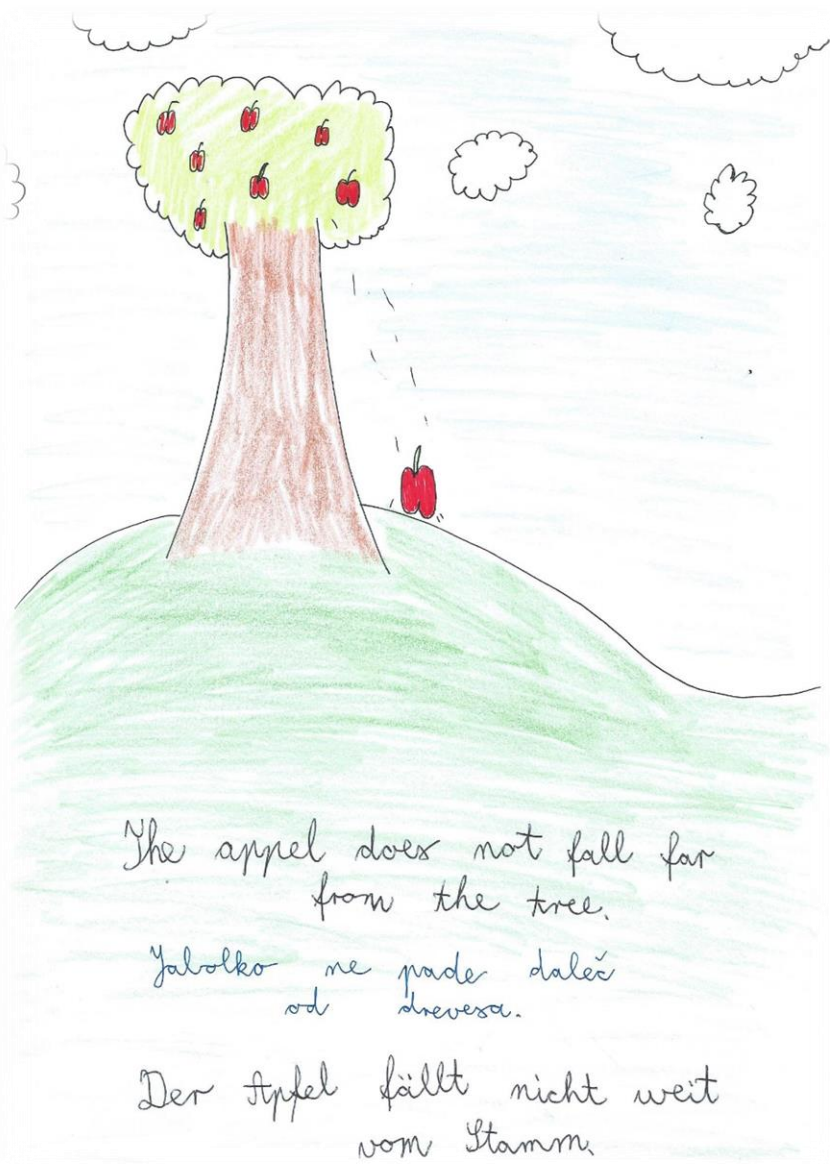 The appel does not fall far
from the tree.
Jabolko ne pade daleč
od drevesa.
Der Apfel fällt nicht weit
vom Stamm.